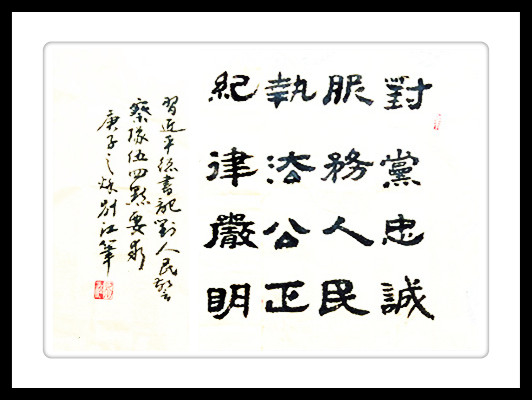 對黨忠誠
服務人民
執法公正
紀律嚴明
習近平總書記對人民警
察隊伍四點要求
庚子之秋
江筆